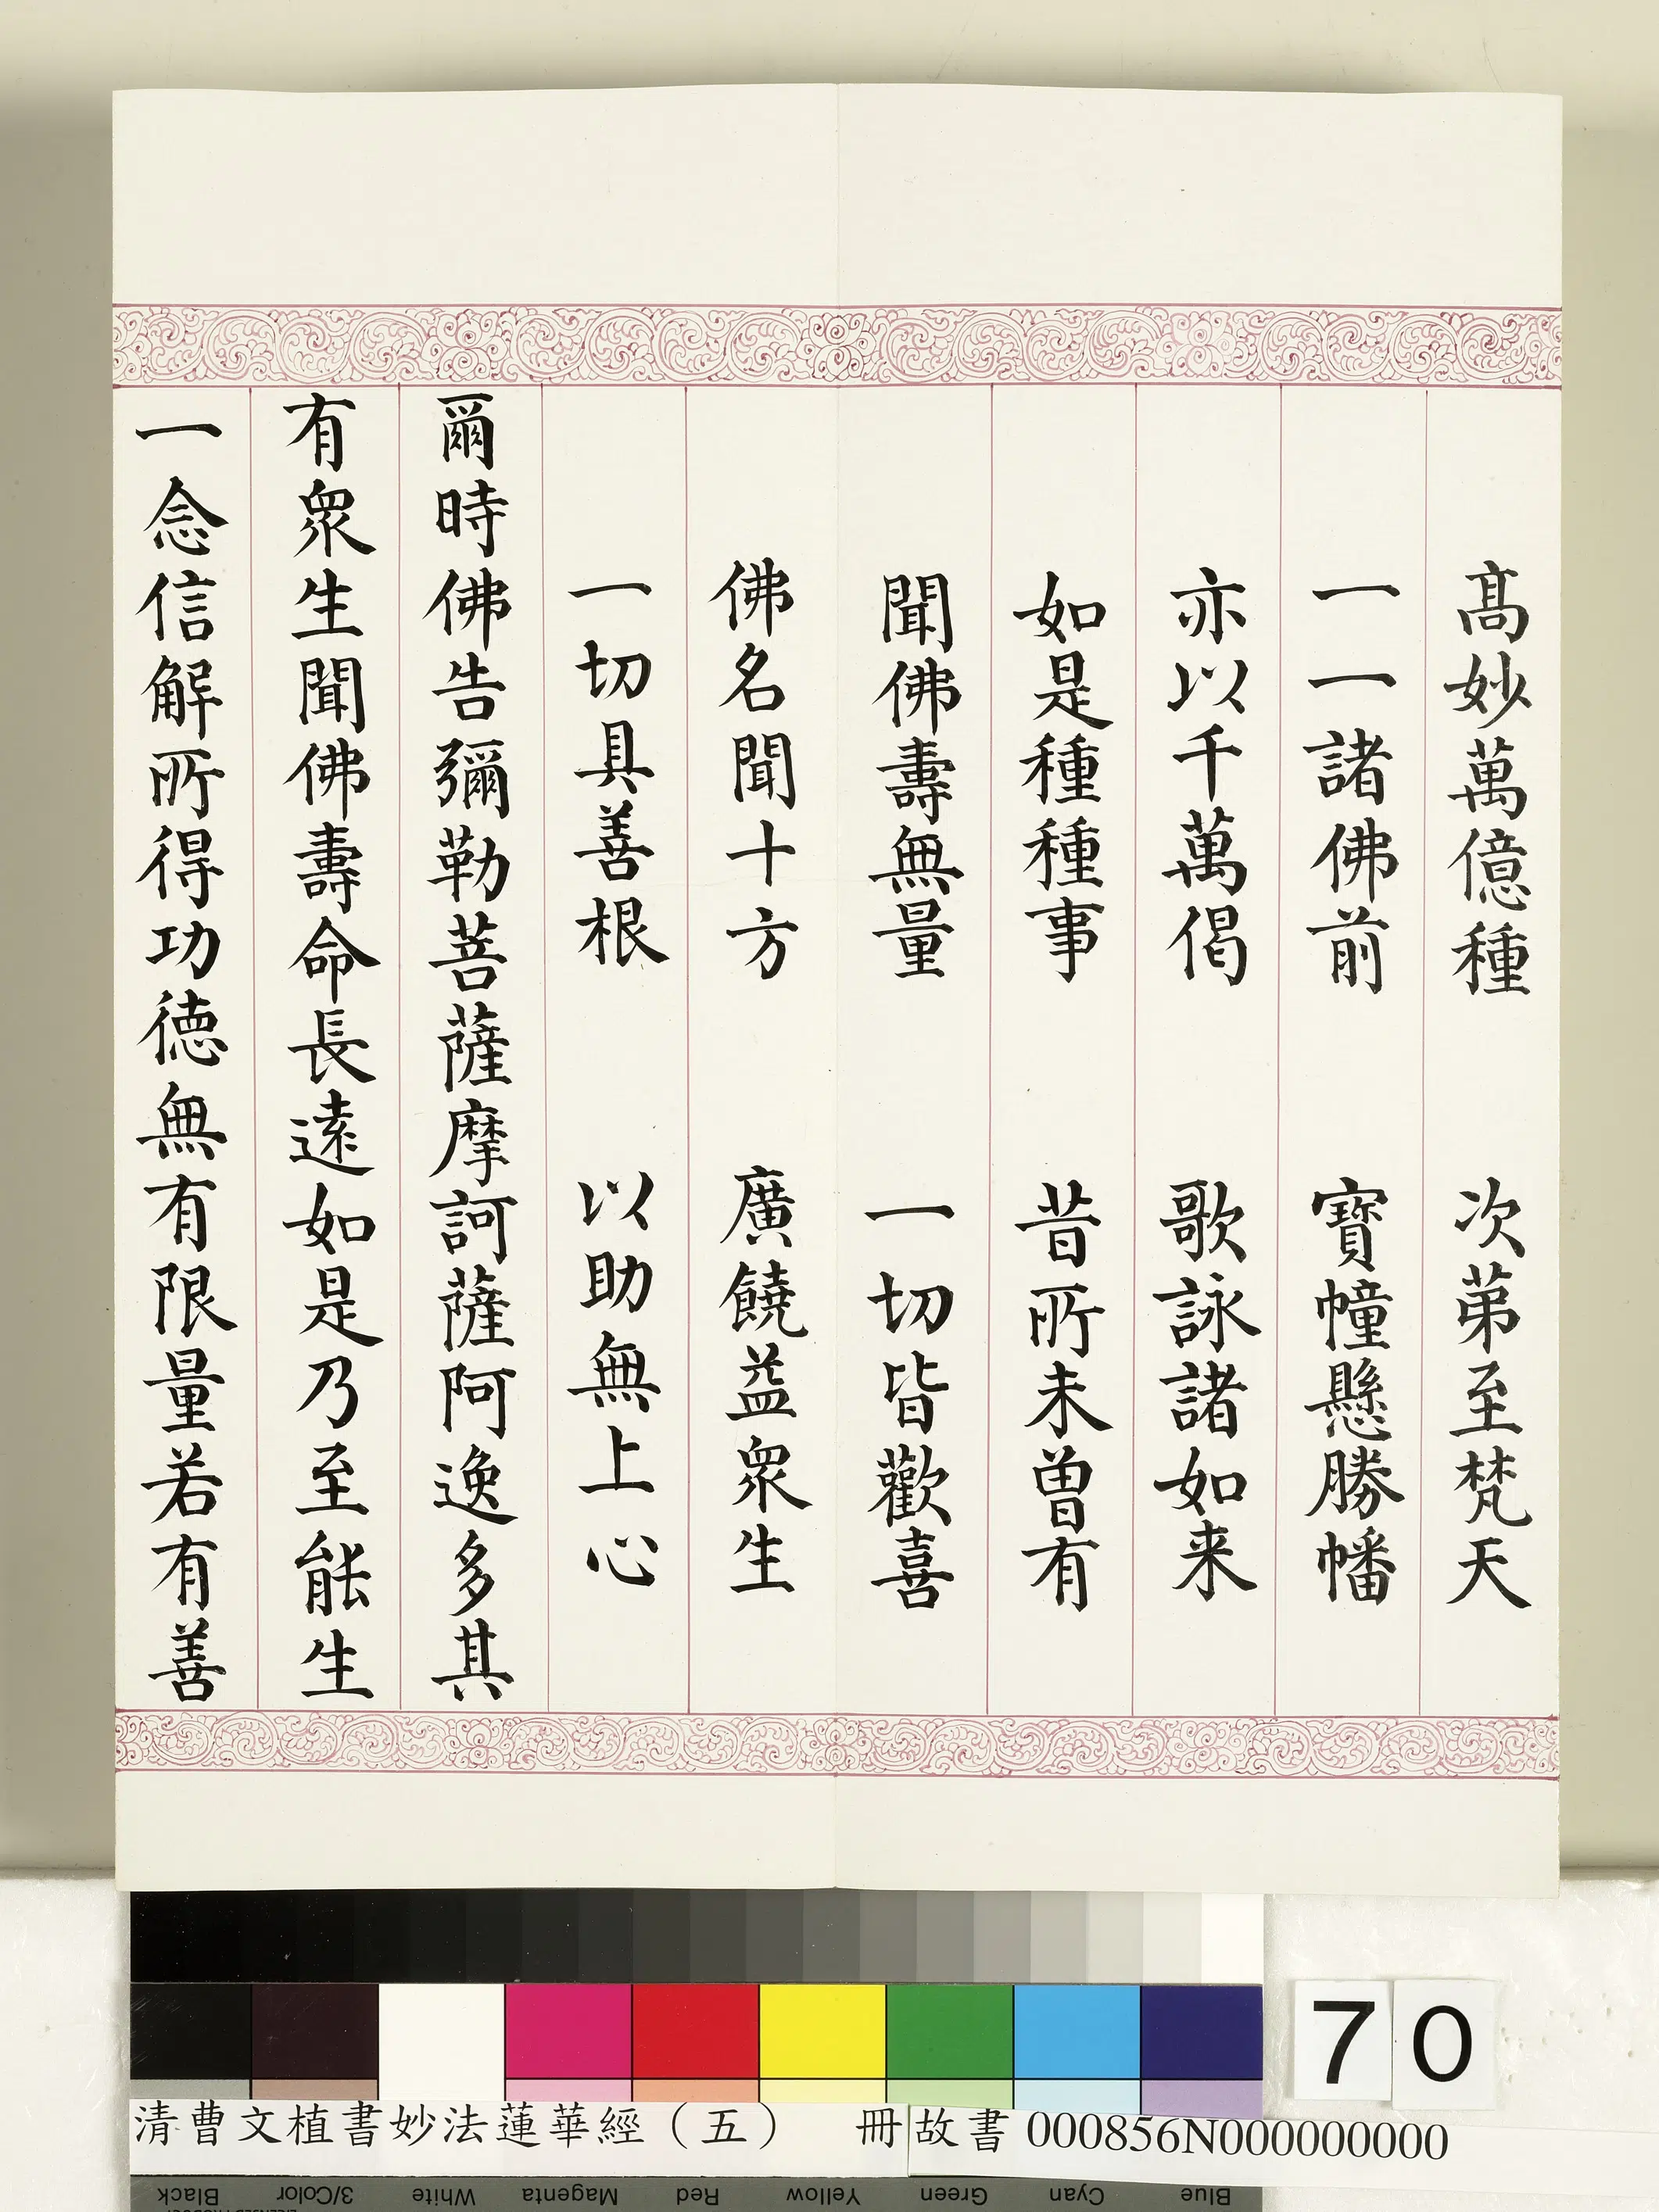 高妙萬億種　次第至梵天
一一諸佛前　寶幢懸勝幡
亦以千萬偈　歌詠諸如来
如是種種事　昔所未曾有
聞佛壽無量　一切皆歡喜
佛名聞十方　廣饒益眾生
一切具善根　以助無上心
爾時佛告彌勒菩薩摩訶薩阿逸多其
有眾生聞佛壽命長遠如是乃至能生
一念信解所得功德無有限量若有善
70
清曹文植書妙法蓮華經（五）　冊故書000856N000000000
Black 3/Color White Magenta Red Yellow Green Cyan Blue